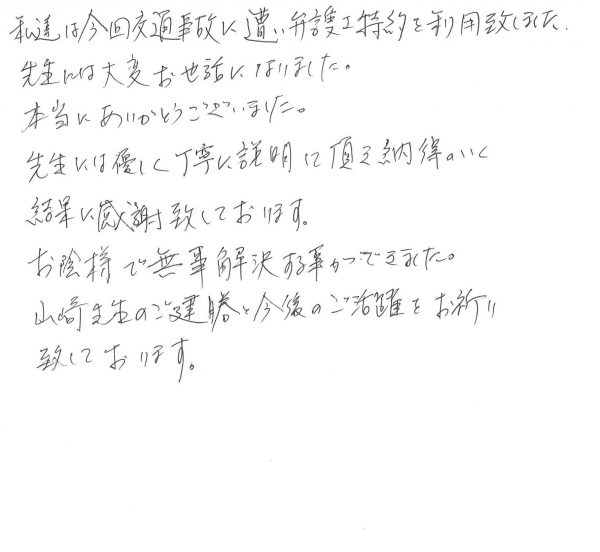 私達は今回交通事故に遭い弁護士特約を利用致しました.
先生には大変お世話になりました。
本当にありがとうございました。
先生には優しく丁寧に説明して頂き納得のいく
結果に感謝致しております。
お陰様で無事解決する事ができました。
山崎先生のご健勝と今後のご活躍をお祈り
致しております。